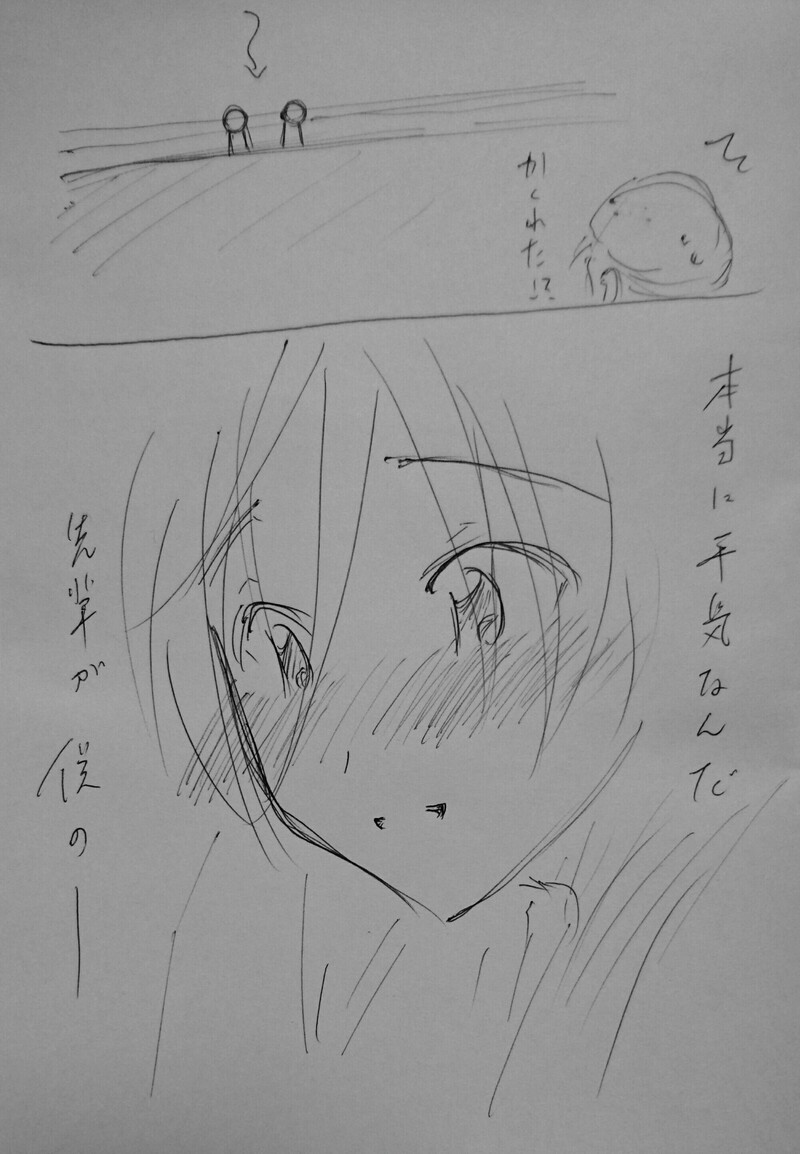 かくれた!?
本当に平気なんだ
先輩が
僕の―